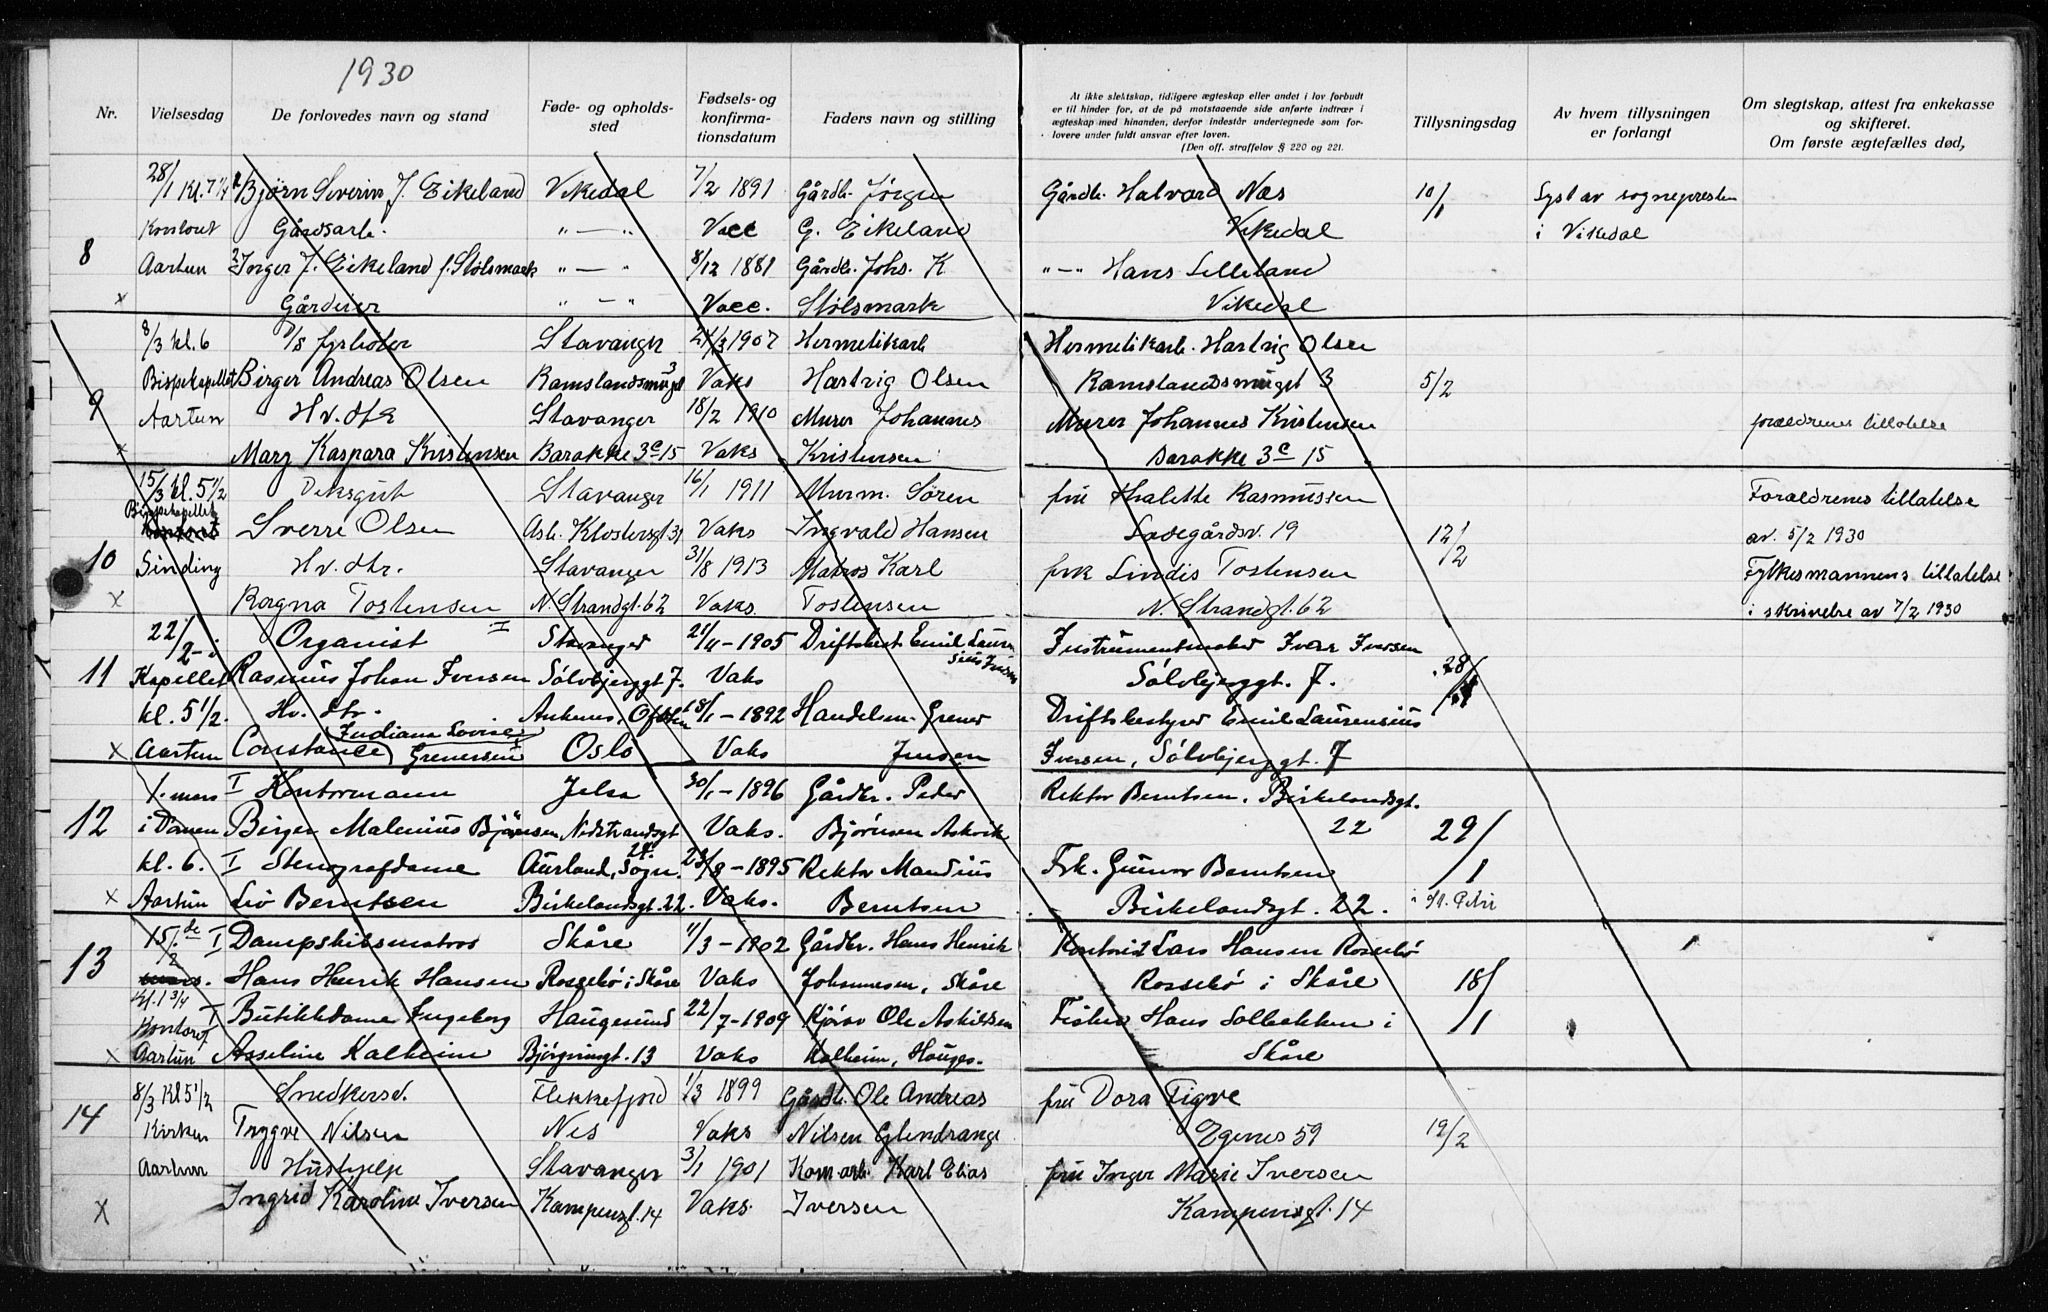 1930
Nr. Vielsesdag De forlovedes navn og stand Føde- og opholds-sted Fødsels- og konfirma-tionsdatum Faders navn og stilling
At ikke slektskap, tidligere ægteskap eller andet i lov forbudt
er til hinder for, at de på motstaaende side anførte indtrær i
ægteskap med hinanden, derfor indestår undertegnede som for-
lovere under fuldt ansvar efter loven.
(Den off. straffelov § 220 og 221.
Tillysningsdag
Av hvem tillysningen
er forlangt
Om slegtskap, attest fra enkekasse
og skifteret.
Om første ægtefælles død,
28/1 Kl. 7 1/4 Bjørn Severin J. Eikeland Vikedal 7/2 1891 Gårdb. Jørgen Gårdb. Halvard Næs 10/1 Lyst av sognepresten
Kontoret Gårdsarb. " — " Vacc G. Eikeland Vikedal i Vikedal
8 Aartun Inger J. Eikeland f. Stølsmark " — " 8/12 1881 Gårdb. Johs. K " — " Hans Lilleland
x Gårdeier " — " Vacc. Stølsmark Vikedal
8/3 kl. 6 D/S fyrbøter Stavanger 21/3 1907 Hermetikarb Hermetikarb. Hartvig Olsen
Bispekapellet Birger Andreas Olsen Ramslandsmuget 3 Vaks Hartvig Olsen Ramslandsmuget 3 5/2
9 Aartun Hv. dtr Stavanger 18/2 1910 Murer Johannes Murer Johannes Kristensen forældrenes tillatelse
x Mary Kaspara Kristensen Barakke 3c 15 Vaks Kristensen Barakke 3c 15
15/3 kl. 5 1/2 Viksgut Stavanger 16/1 1911 Murm. Søren fru Thalette Rasmussen Forældrenes tillatelse
Bispekapellet Kontoret Sverre Olsen Asb. Klostersgt 31 Vaks Ingvald Hansen Ladegårdsv. 19 12/2 av. 5/2 1930
10 Sinding Hv. dtr. Stavanger 31/8 1913 Matros Karl frk Lindis Tostensen Fylkesmannens tillatelse
x Ragna Tostensen N. Strandgt. 62 Vaks. Tostensen N. Strandgt. 62 i skrivelse av 7/2 1930
22/2 - i Organist I Stavanger 21/4 - 1905 Driftsbest Emil Laurensius Iversen Instrumentmaker Iver Iversen
11 Kapellet Rasmus Johan Iversen Sølvbjerggt 7. Vaks Sølvbjerggt. 7. 28/1
kl. 5 1/2. Hv. dtr. Ankenes, Ofoten 18/1 - 1892 Handelsm. Grener Driftsbestyrer Emil Laurensius
x Aartun Constance Indiana Lovise Grenersen Oslo Vaks Jensen Iversen, Sølvbjerggt. 7
1. mars I Kontormann Jelsa 30/1 - 1896 Gårdbr. Peder Rektor Berntsen. Birkelandsgt.
12 i Domen Birger Malenius Bjørnsen, Nedstrandsgt 24. Vaks. Bjørnsen Askvik 22 29/1
kl. 6. I Stenografdame Aurland, Sogn. 23/8 - 1895 Rektor Mandius Frk. Gunvor Berntsen
x Aartun Liv Berntsen Birkelandsgt. 22. Vaks. Berntsen Birkelandsgt. 22. i St. Petri
15.de/2 I Dampskibsmatros Skåre 11/3 - 1902 Gårdbr. Hans Henrik Lars Hansen Rossebø
13 mars. Hans Henrik Hansen Rossebø i Skåre Vaks Johannesen, Skåre Rossebø i Skåre 18/1
Kl. 1 3/4 Kontoret I Butikkdame Ingeborg Haugesund 22/7 - 1909 Kjører Ole Askildsen Fisker Hans Solbakken i
x Aartun Asseline Kalheim Bjørgvinsgt. 13 Vaks Kalheim, Hauges. Skåre
8/3 Kl 5 1/2 Snedkersv. Flekkefjord 1/3 1899 Gårdb. Ole Andreas fru Dora Tigve
14 Kirken Trygve Nilsen Nes Vaks Nilsen Glendrange Egenes 59 19/2
Aartun Hushjelp Stavanger 3/1 1901 Kom arb. Karl Elias fru Inger Marie Iversen
x Ingrid Karoline Iversen Kampensgt. 14 Vaks. Iversen Kampensgt. 14